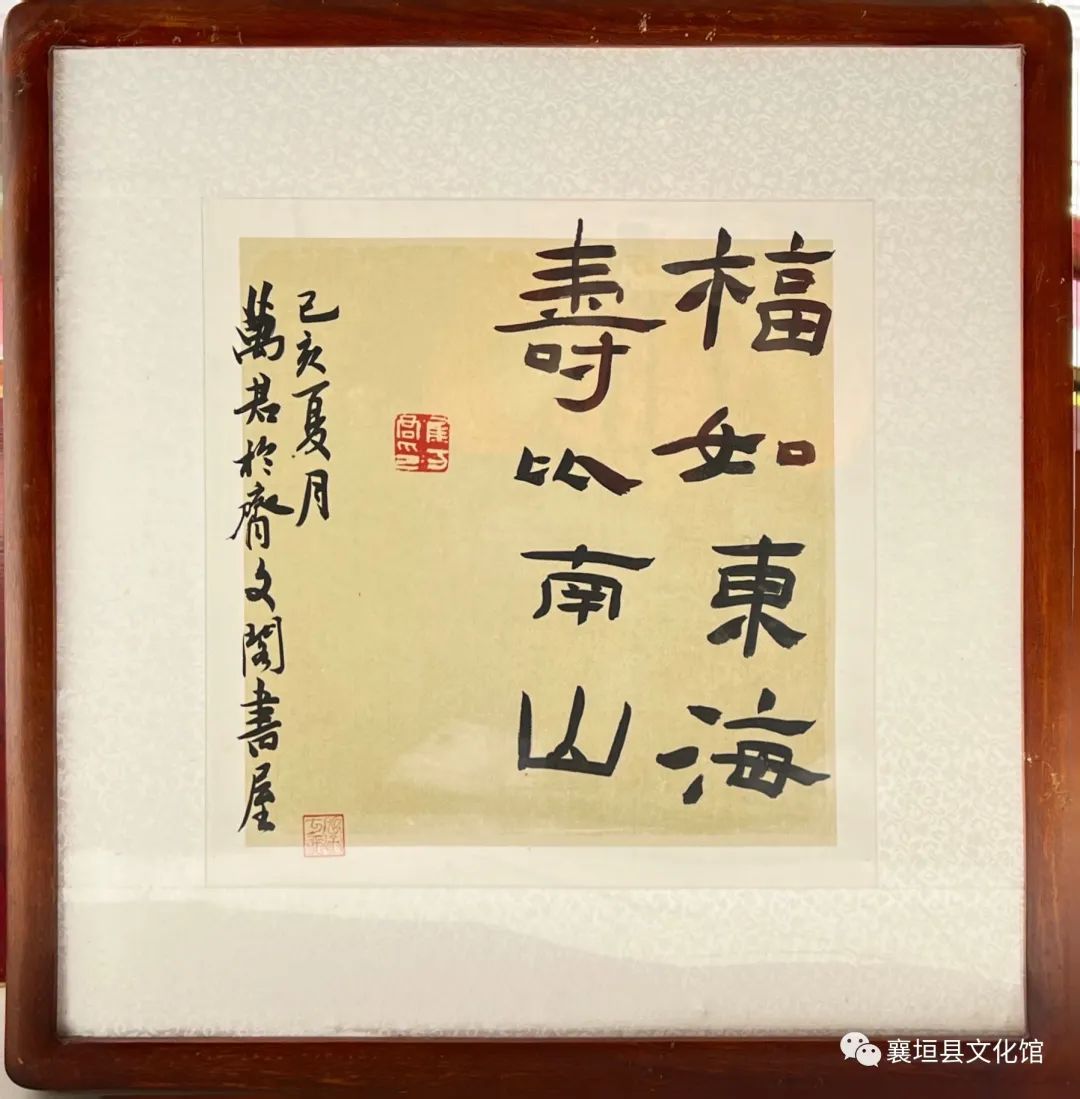 福如東海
壽比南山
己亥夏月
萬君於齋文閣書屋
襄垣县文化馆